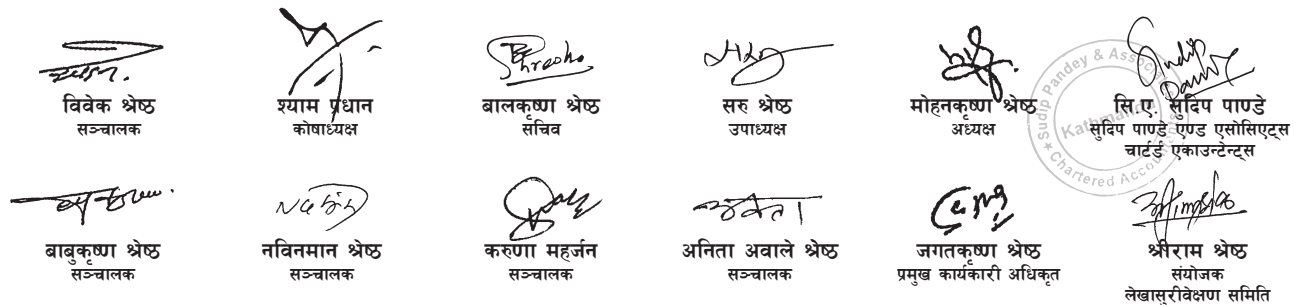 विवेक श्रेष्ठ
सञ्चालक
श्याम प्रधान
कोषाध्यक्ष
बालकृष्ण श्रेष्ठ
सचिव
सरु श्रेष्ठ
उपाध्यक्ष
मोहनकृष्ण श्रेष्ठ
अध्यक्ष
सि.ए. सुदिप पाण्डे
सुदिप पाण्डे एण्ड एसोसिएट्स
चार्टर्ड एकाउन्टेन्ट्स
बाबुकृष्ण श्रेष्ठ
सञ्चालक
नविनमान श्रेष्ठ
सञ्चालक
करुणा महर्जन
सञ्चालक
अनिता अवाले श्रेष्ठ
सञ्चालक
जगतकृष्ण श्रेष्ठ
प्रमुख कार्यकारी अधिकृत
श्रीराम श्रेष्ठ
संयोजक
लेखासुरीवेक्षण समिति